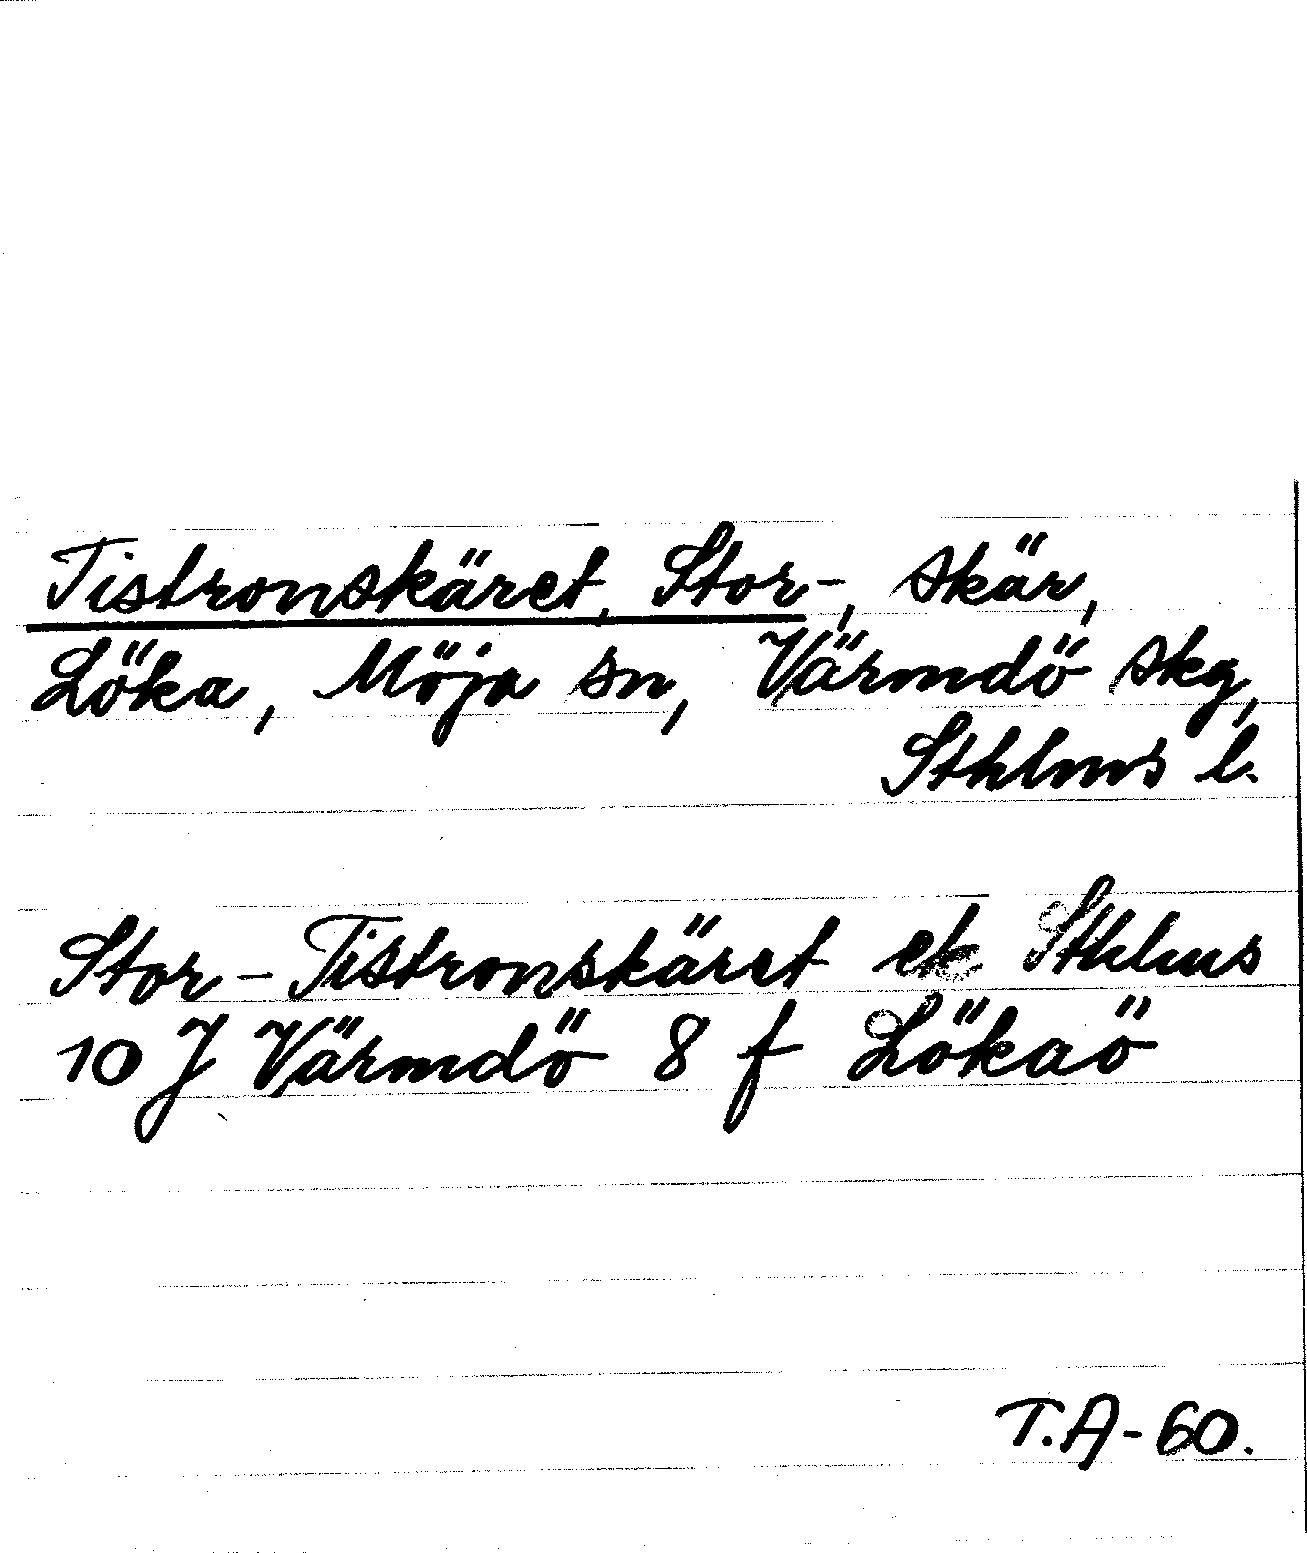 Tistronskäret, Stor-, skär,
Löka, Möja sn, Värmdö skg,
Sthlms l.
Stor-Tistronskäret ek Sthlms
10 J Värmdö 8 f Lökaö
T.A-60.